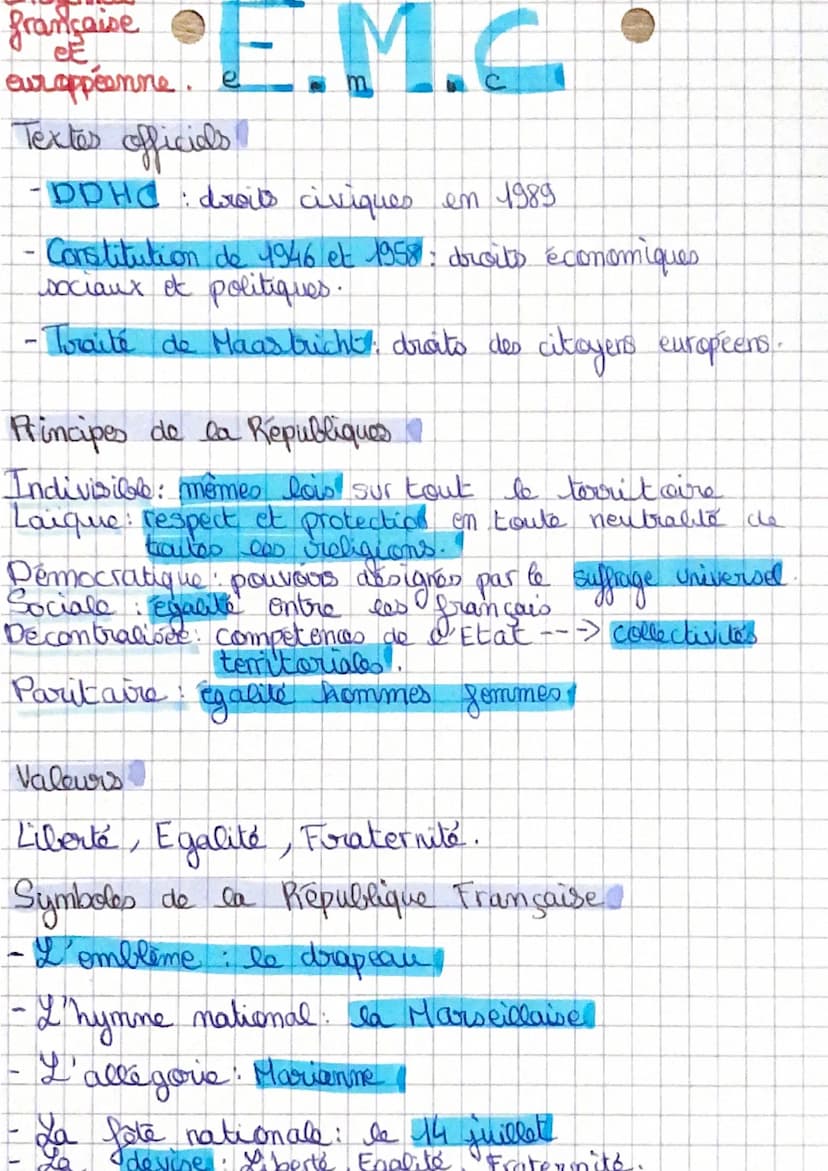 française
et
européenne.
E.M.C
e m c
Textes officiels
- DDHC : droits civiques en 1989
- Constitution de 1946 et 1958 : droits économiques
sociaux et politiques.
- Traité de Maastricht : droits des citoyens européens.
Principes de la Républiques
Indivisible : mêmes lois sur tout le territoire
Laïque : respect et protection en toute neutralité de
toutes les religions.
Démocratique : pouvoirs désignés par le suffrage universel.
Sociale : égalité entre les français
Décentralisée : compétences de l'Etat ---> collectivités
territoriales.
Paritaire : égalité hommes femmes
Valeurs
Liberté, Egalité, Fraternité.
Symboles de la République Française
- L'emblème : le drapeau
- L'hymne national : la Marseillaise
- L'allégorie : Marianne
- La fête nationale : le 14 juillet
- La devise : Liberté, Egalité, Fraternité.